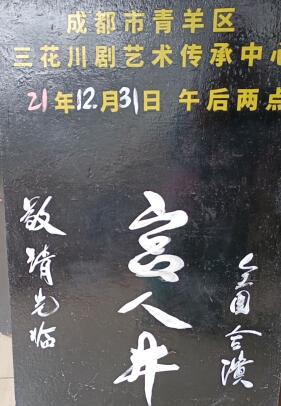 成都市青羊区
三花川剧艺术传承中心
21年12.月31日 午后两点
敬请光临
宫人井
合演